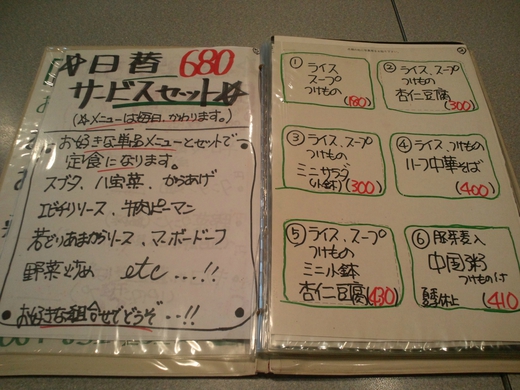 ☆日替 680
サービスセット☆
(☆メニューは毎日、かわります。)
お好きな単品メニューとセットで
定食になります。
スブタ、八宝菜、からあげ
エビチリソース、牛肉ピーマン
若どりあまからソース、マーボードーフ
野菜炒め etc ・・・・!!
お好きな組合せでどうぞ・・!!
① ライス
スープ
つけもの
(180)
② ライス、スープ
つけもの
杏仁豆腐
(300)
③ ライス、スープ
つけもの
ミニサラダ
(小鉢)(300)
④ ライス、つけもの
ハーフ中華そば
(400)
⑤ ライス、スープ
つけもの
ミニ小鉢
杏仁豆腐(430)
⑥ 胚芽麦入
中国粥
つけもの付
(410)